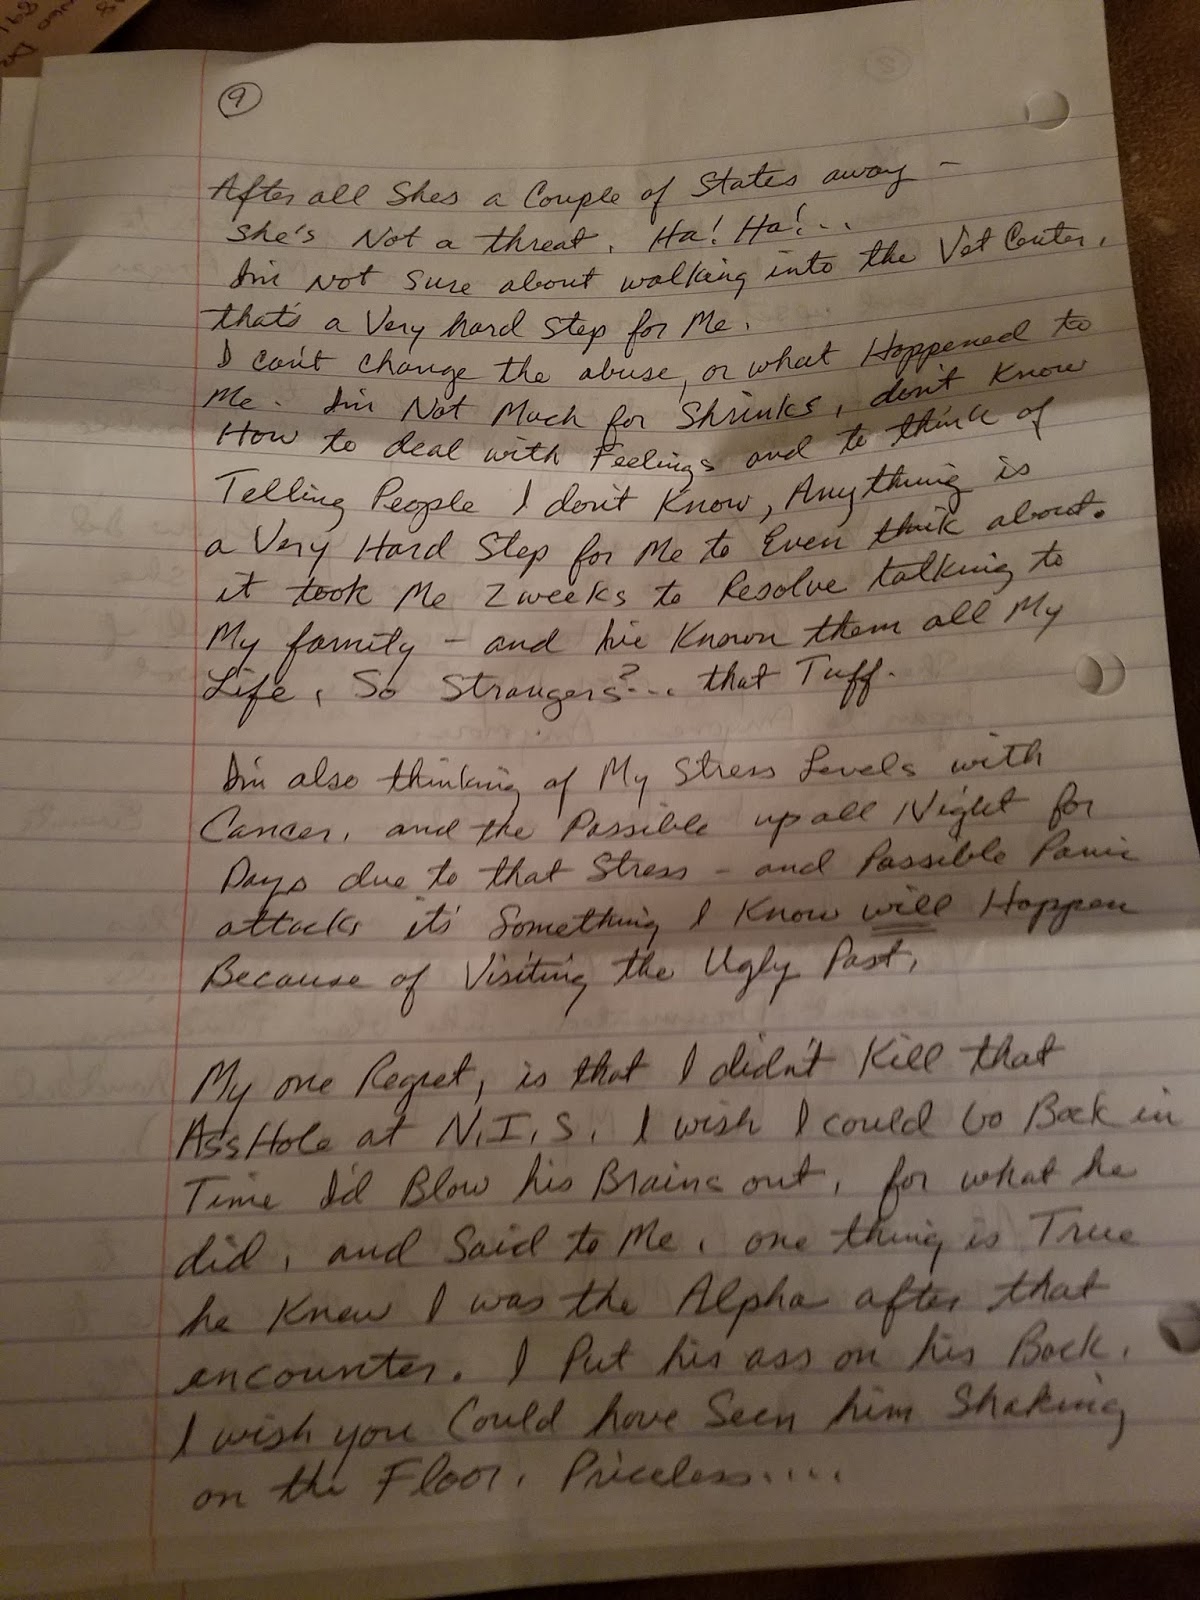 9
After all Shes a Couple of States away -
She's Not a threat. Ha! Ha!...
I'm Not Sure about walking into the Vet Center,
that's a Very hard Step for Me.
I can't change the abuse, or what Happened to
Me. I'm Not Much for Shrinks, don't Know
How to deal with Feelings and to think of
Telling People I don't Know, Anything is
a Very Hard Step for Me to Even think about.
it took Me 2 weeks to Resolve talking to
My family - and I've Known them all My
Life, So Strangers?... that Tuff.
I'm also thinking of My Stress Levels with
Cancer, and the Possible up all Night for
Days due to that Stress - and Possible Panic
attacks it's Something I Know will Happen
Because of Visiting the Ugly Past,
My one Regret, is that I didn't Kill that
AssHole at N.I.S. I wish I could Go Back in
Time I'd Blow his Brains out, for what he
did, and Said to Me. one thing is True
he Knew I was the Alpha after that
encounter. I Put his ass on his Back.
I wish you Could have Seen him Shaking
on the Floor. Priceless....